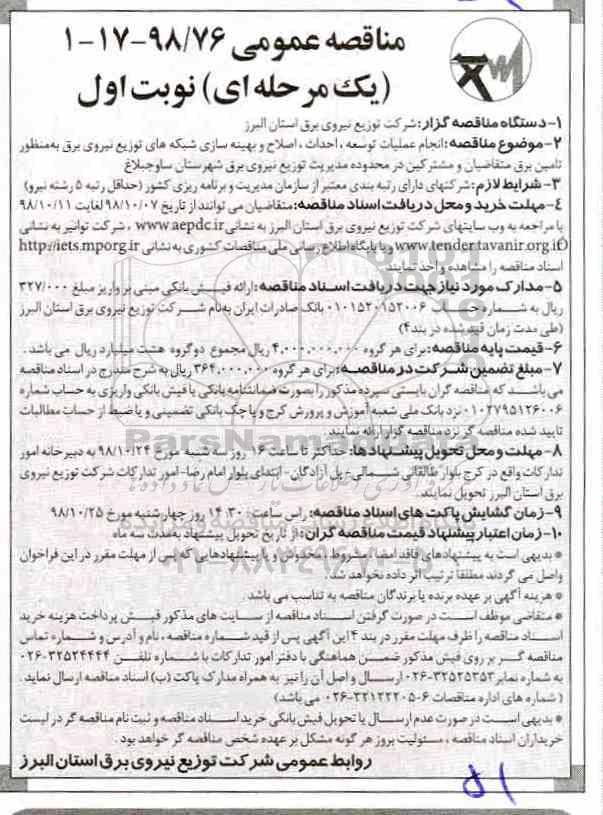 مناقصه عمومی ۹۸/۷۶-۱۷-۱
(یک مرحله ای) نوبت اول
۱-دستگاه مناقصه گزار: شرکت توزیع نیروی برق استان البرز
۲-موضوع مناقصه: انجام عملیات توسعه ، احداث ، اصلاح و بهینه سازی شبکه های توزیع نیروی برق به‌منظور
تامین برق متقاضیان و مشترکین در محدوده مدیریت توزیع نیروی برق شهرستان ساوجبلاغ
۳- شرایط لازم: شرکتهای دارای رتبه بندی معتبر از سازمان مدیریت و برنامه ریزی کشور (حداقل رتبه ۵ رشته نیرو)
۴-مهلت خرید و محل دریافت اسناد مناقصه: متقاضیان می توانند از تاریخ ۹۸/۱۰/۰۷ لغایت ۹۸/۱۰/۱۱
با مراجعه به وب سایتهای شرکت توزیع نیروی برق استان البرز به نشانی www.aepdc.ir ، شرکت توانیر به نشانی
www.tender.tavanir.org.ir و یا پایگاه اطلاع رسانی ملی مناقصات کشوری به نشانی http://iets.mporg.ir
اسناد مناقصه را مشاهده و اخذ نمایند.
۵-مدارک مورد نیاز جهت دریافت اسناد مناقصه: ارائه فیش بانکی مبنی بر واریز مبلغ ۳۲۷/۰۰۰
ریال به شماره حساب ۰۱۰۱۵۲۰۱۵۳۰۰۶ بانک صادرات ایران به‌نام شرکت توزیع نیروی برق استان البرز
(طی مدت زمان قید شده در بند۴)
۶- قیمت پایه مناقصه: برای هر گروه ۴,۰۰۰,۰۰۰,۰۰۰ ریال مجموع دو گروه هشت میلیارد ریال می باشد .
۷-مبلغ تضمین شرکت در مناقصه: برای هر گروه ۳۶۴,۰۰۰,۰۰۰ ریال به شرح مندرج در اسناد مناقصه
می باشد که مناقصه گران بایستی سپرده مذکور را بصورت ضمانتنامه بانکی یا فیش بانکی واریزی به حساب شماره
۰۱۰۲۷۹۵۱۲۶۰۰۶ نزد بانک ملی شعبه آموزش و پرورش کرج و یا چک بانکی تضمینی و یا ضبط از حساب مطالبات
تایید شده مناقصه گر نزد مناقصه گزار ارائه نمایند.
۸- مهلت و محل تحویل پیشنهادها: حداکثر تا ساعت ۱۶ روز سه شنبه مورخ ۹۸/۱۰/۲۴ به دبیرخانه امور
تدارکات واقع در کرج بلوار طالقانی شمالی-پل آزادگان- ابتدای بلوار امام رضا- امور تدارکات شرکت توزیع نیروی
برق استان البرز تحویل نمایند.
۹-زمان گشایش پاکت های اسناد مناقصه: راس ساعت ۱۴:۳۰ روز چهارشنبه مورخ ۹۸/۱۰/۲۵
۱۰-زمان اعتبار پیشنهاد قیمت مناقصه گران: از تاریخ تحویل پیشنهاد به‌مدت سه ماه
● بدیهی است به پیشنهادهای فاقد امضا، مشروط، مخدوش و یا پیشنهادهایی که پس از مهلت مقرر در این فراخوان
واصل می گردند مطلقا ترتیب اثر داده نخواهد شد.
● هزینه آگهی بر عهده برنده یا برندگان مناقصه به تناسب می باشد .
● متقاضی موظف است در صورت گرفتن اسناد مناقصه از سایت های مذکور فیش پرداخت هزینه خرید
اسناد مناقصه را ظرف مهلت مقرر در بند ۴ این آگهی پس از قید شماره مناقصه ، نام و آدرس و شماره تماس
مناقصه گر بر روی فیش مذکور ضمن هماهنگی با دفتر امور تدارکات با شماره تلفن ۳۲۵۲۴۴۴۴-۰۲۶
به شماره نمابر ۳۲۵۲۵۳۵۳-۰۲۶ ارسال و اصل آن را نیز به همراه مدارک پاکت (ب) اسناد مناقصه ارسال نماید .
( شماره های اداره مناقصات ۶-۳۲۱۲۲۲۰۵-۰۲۶ می باشد)
● بدیهی است در صورت عدم ارسال یا تحویل فیش بانکی خرید اسناد مناقصه و ثبت نام مناقصه گر در لیست
خریداران اسناد مناقصه ، مسئولیت بروز هر گونه مشکل بر عهده شخص مناقصه گر خواهد بود .
روابط عمومی شرکت توزیع نیروی برق استان البرز
ParsNamadData